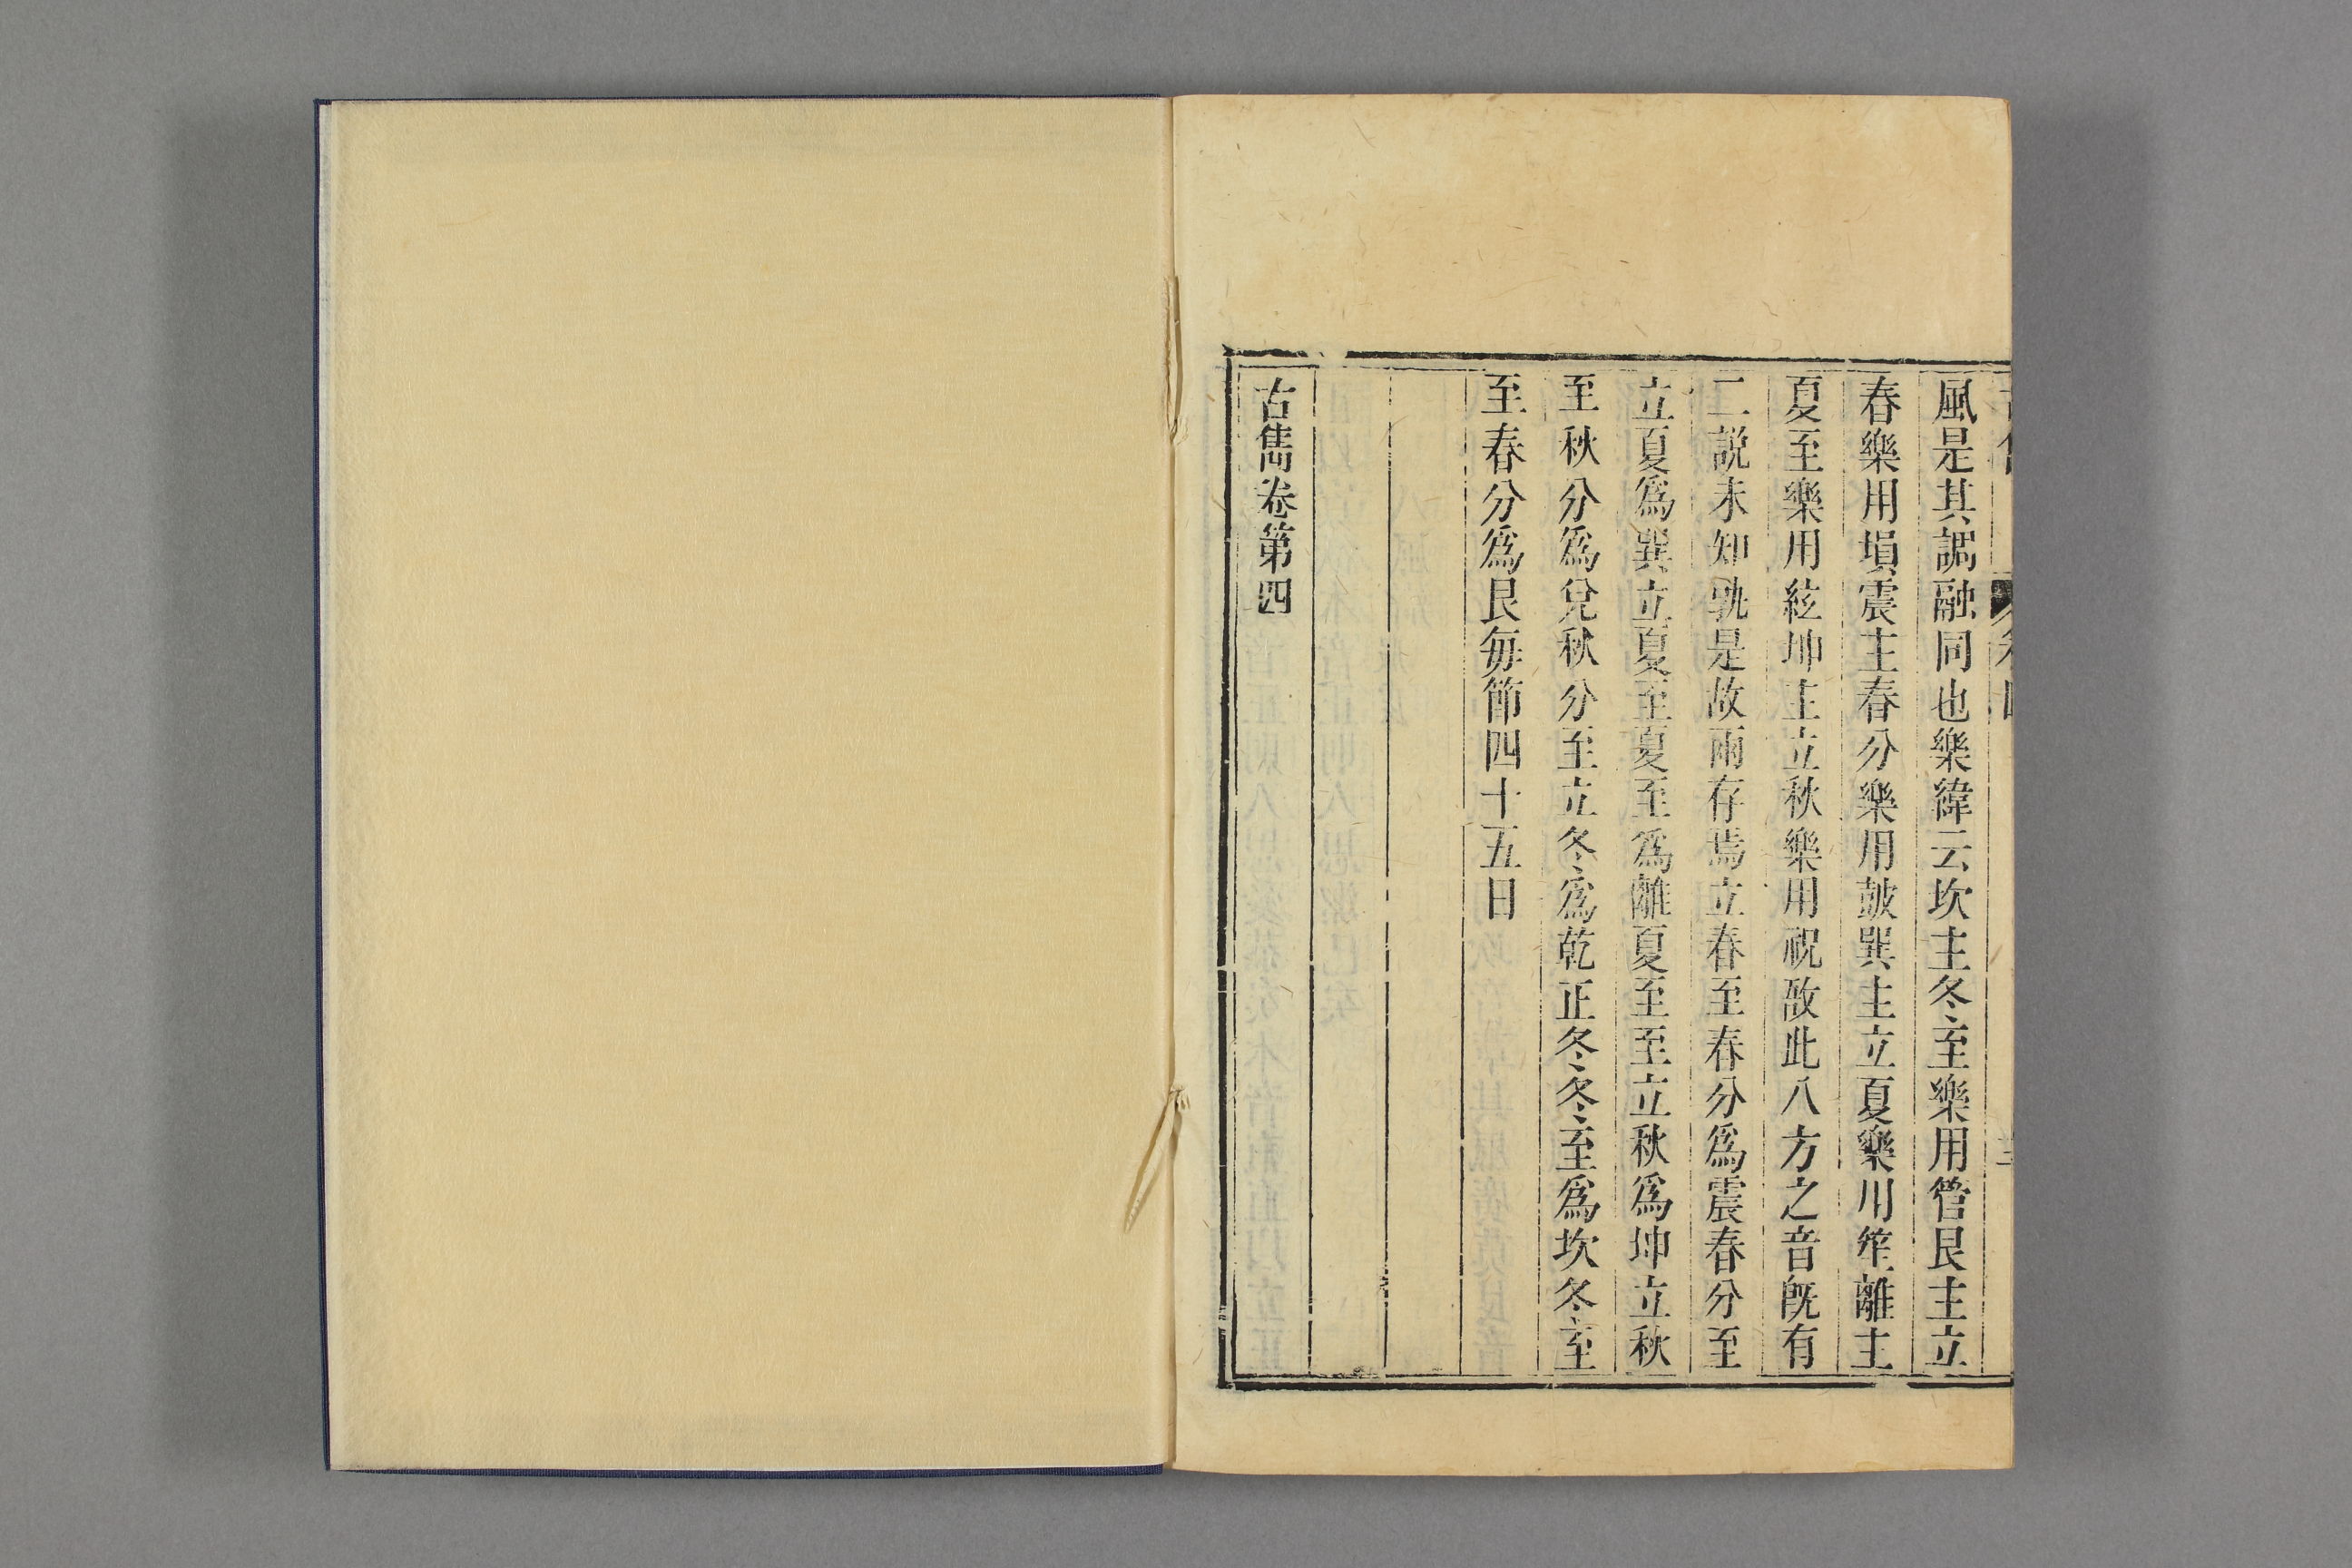 風是其調融同也樂緯云坎主冬至樂用管艮主立
春樂用塤震主春分樂用鼓巽主立夏樂用笙離主
夏至樂用絃坤主立秋樂用祝敔此八方之音旣有
二説未知孰是故兩存焉立春至春分爲震春分至
立夏爲巽立夏至夏至爲離夏至至立秋爲坤立秋
至秋分爲兌秋分至立冬爲乾正冬冬至爲坎冬至
至春分爲艮每節四十五日
古雋卷第四